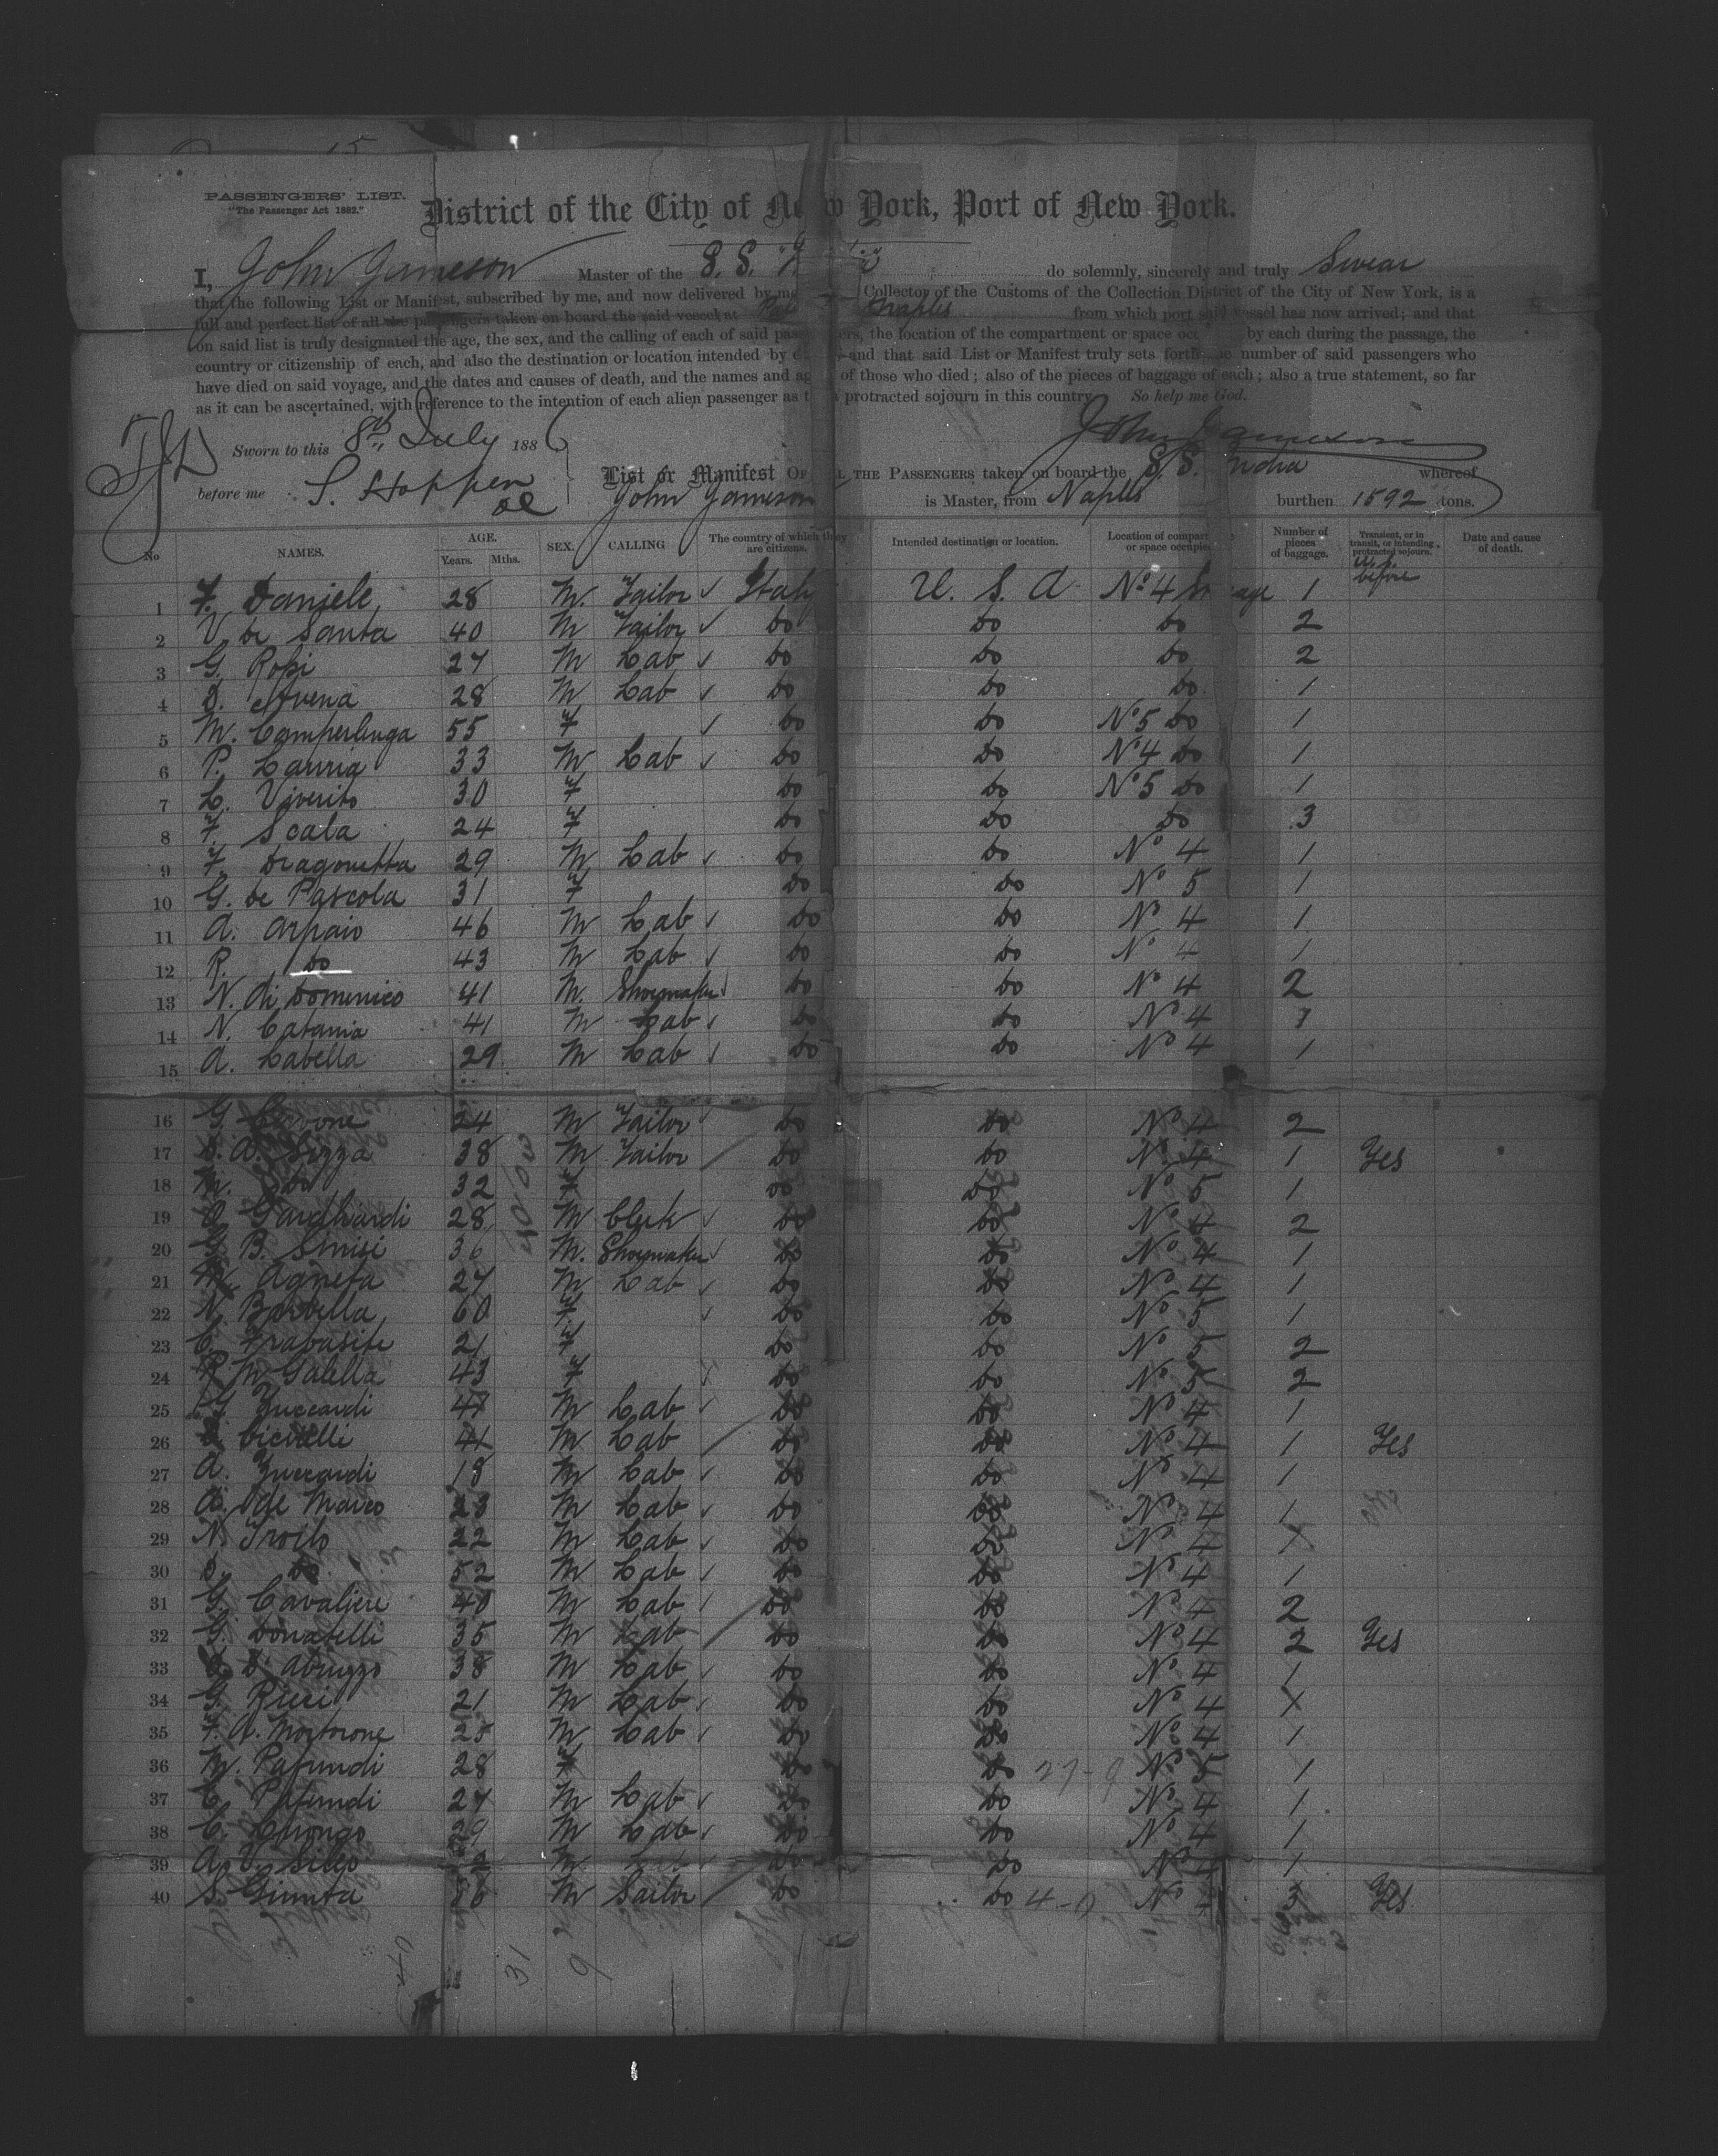 PASSENGERS' LIST.
"The Passenger Act 1882."
District of the City of New York, Port of New York.
I, John Jameson Master of the S. S. do solemnly, sincerely and truly Swear
that the following List or Manifest, subscribed by me, and now delivered by me Collector of the Customs of the Collection District of the City of New York, is a
full and perfect list of all the passengers taken on board the said vessel at Naples from which port said vessel has now arrived; and that
on said list is truly designated the age, the sex, and the calling of each of said passengers, the location of the compartment or space occ by each during the passage, the
country or citizenship of each, and also the destination or location intended by e and that said List or Manifest truly sets forth the number of said passengers who
have died on said voyage, and the dates and causes of death, and the names and ag of those who died; also of the pieces of baggage of each; also a true statement, so far
as it can be ascertained, with reference to the intention of each alien passenger as t protracted sojourn in this country. So help me God.
Sworn to this 8th July 1886 John Jameson
before me S. Hoppen
List or Manifest OF ALL THE PASSENGERS taken on board the S. S. India whereof
John Jameson is Master, from Naples burthen 1592 tons.
No NAMES. AGE. Years. Mths. SEX. CALLING The country of which they are citizens. Intended destination or location. Location of compart or space occupie Number of pieces of baggage. Transient, or in transit, or intending protracted sojourn. Date and cause of death.
U.S. before
1 F. Daniele 28 M. Tailor Italy U. S. A No 4 St age 1
2 V. de Santa 40 M Tailor do do do 2
3 G. Rossi 27 M Lab do do do 2
4 D. Avena 28 M Lab do do do 1
5 M. Camperlenga 55 F do do No 5 do 1
6 P. Lanna 33 M Lab do do No 4 do 1
7 L. Viverito 30 F do do No 5 do 1
8 F. Scala 24 F do do do 3
9 F. Dragonetta 29 M Lab do do No 4 1
10 G. de Pascola 31 F do do No 5 1
11 A. Arpaio 46 M Lab do do No 4 1
12 R. do 43 M Lab do do No 4 1
13 N. di Domenico 41 M. Shoemaker do do No 4 2
14 N. Catania 41 M Lab do do No 4 1
15 A. Labella 29 M Lab do do No 4 1
16 G. 24 M Tailor do do No 4 2
17 38 M Tailor do do No 4 1 Yes
18 M. do 32 F do do No 5 1
19 28 M Clerk do do No 4 2
20 G B. Sinisi 36 M. Shoemaker do do No 4 1
21 M. Agneta 27 M Lab do do No 4 1
22 N. Barbella 60 F do do No 5 1
23 C. Frabasile 21 F do do No 5 2
24 R. M. Galella 43 F do do No 5 2
25 G Zuccardi 47 M Lab do do No 4 1
26 41 M Lab do do No 4 1 Yes
27 A. Zuccardi 18 M Lab do do No 4 1
28 A. de Marco 23 M Lab do do No 4 1
29 N. Troilo 22 M Lab do do No 4 X
30 D. do 52 M Lab do do No 4 1
31 G. Cavaliere 40 M Lab do do No 4 2
32 G. Donatelli 35 M Lab do do No 4 2 Yes
33 D' Abruzzo 38 M Lab do do No 4 1
34 G. Ricci 21 M Lab do do No 4 X
35 F. A. Mortorone 25 M Lab do do No 4 1
36 M. Patundi 28 F do do 27-9 No 5 1
37 C. Patundi 27 M Lab do do No 4 1
38 C. 29 M Lab do do No 4 1
39 A. V. M do do No 4 1
40 S. Giunta M Sailor do do 4-0 No 4 3 Yes
40
31
9